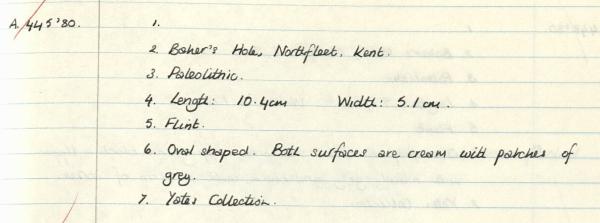 A. 445'80. 1.
2. Baker's Hole, Northfleet, Kent.
3. Paleolithic.
4. Length: 10.4cm Width: 5.1cm.
5. Flint.
6. Oval shaped. Both surfaces are cream with patches of
grey.
7. Yates Collection.